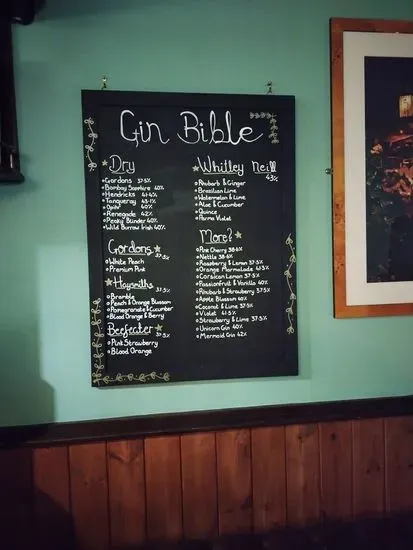 Gin Bible
Dry
Gordons 37.5%
Bombay Sapphire 40%
Hendricks 41.4%
Tanqueray 43.1%
Opihr 40%
Renegade 42%
Peaky Blinder 40%
Wild Burrow Irish 40%
Gordons 37.5%
White Peach
Premium Pink
Haysmiths 37.5%
Bramble
Peach & Orange Blossom
Pomegranate & Cucumber
Blood Orange & Berry
Beefeater 37.5%
Pink Strawberry
Blood Orange
Whitley Neill 43%
Rhubarb & Ginger
Brazilian Lime
Watermelon & Lime
Aloe & Cucumber
Quince
Parma Violet
More?
Pink Cherry 38.8%
Nettle 38.6%
Raspberry & Lemon 37.5%
Orange Marmalade 41.3%
Corsican Lemon 37.5%
Passionfruit & Vanilla 40%
Rhubarb & Strawberry 37.5%
Apple Blossom 40%
Coconut & Lime 37.5%
Violet 41.5%
Strawberry & Lime 37.5%
Unicorn Gin 40%
Mermaid Gin 42%